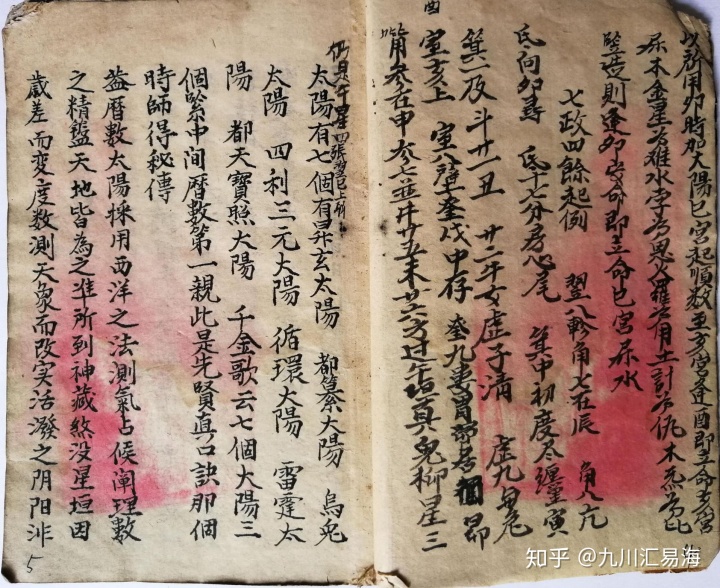 酉
以所用卯時加太陽巳宮起順數至亥宮逢酉即立命亥宮
屬木金星為難水孛為恩火羅為用土計為仇木炁為比
豎造則逢卯當命即立命巳宮屬水
七政四餘起例 翌八軫角七在辰 角八亢
氐向卯尋 氐十六分房心尾 箕中初度尽纏寅
箕二及斗廿一丑 廿二牛女虛子清 虛九
室亥上 奎戊中存 奎九婁胃 昴
觜參在申 井廿五未 鬼柳星三
太陽有七個有昇玄太陽 都纂太陽 烏兔
太陽 四利三元太陽 循環太陽 雷霆太
陽 都天寶照太陽 千金歌云七個太陽三
個緊中間曆數第一親此是先賢真口訣那個
時師得秘傳
葢曆數太陽採用西洋之法測氣占候闡理數
之精蘊天地皆為之准所到神藏煞没星垣因
歲差而変度数測天象而改实活潑之阴阳非
5
知乎 @九川汇易海